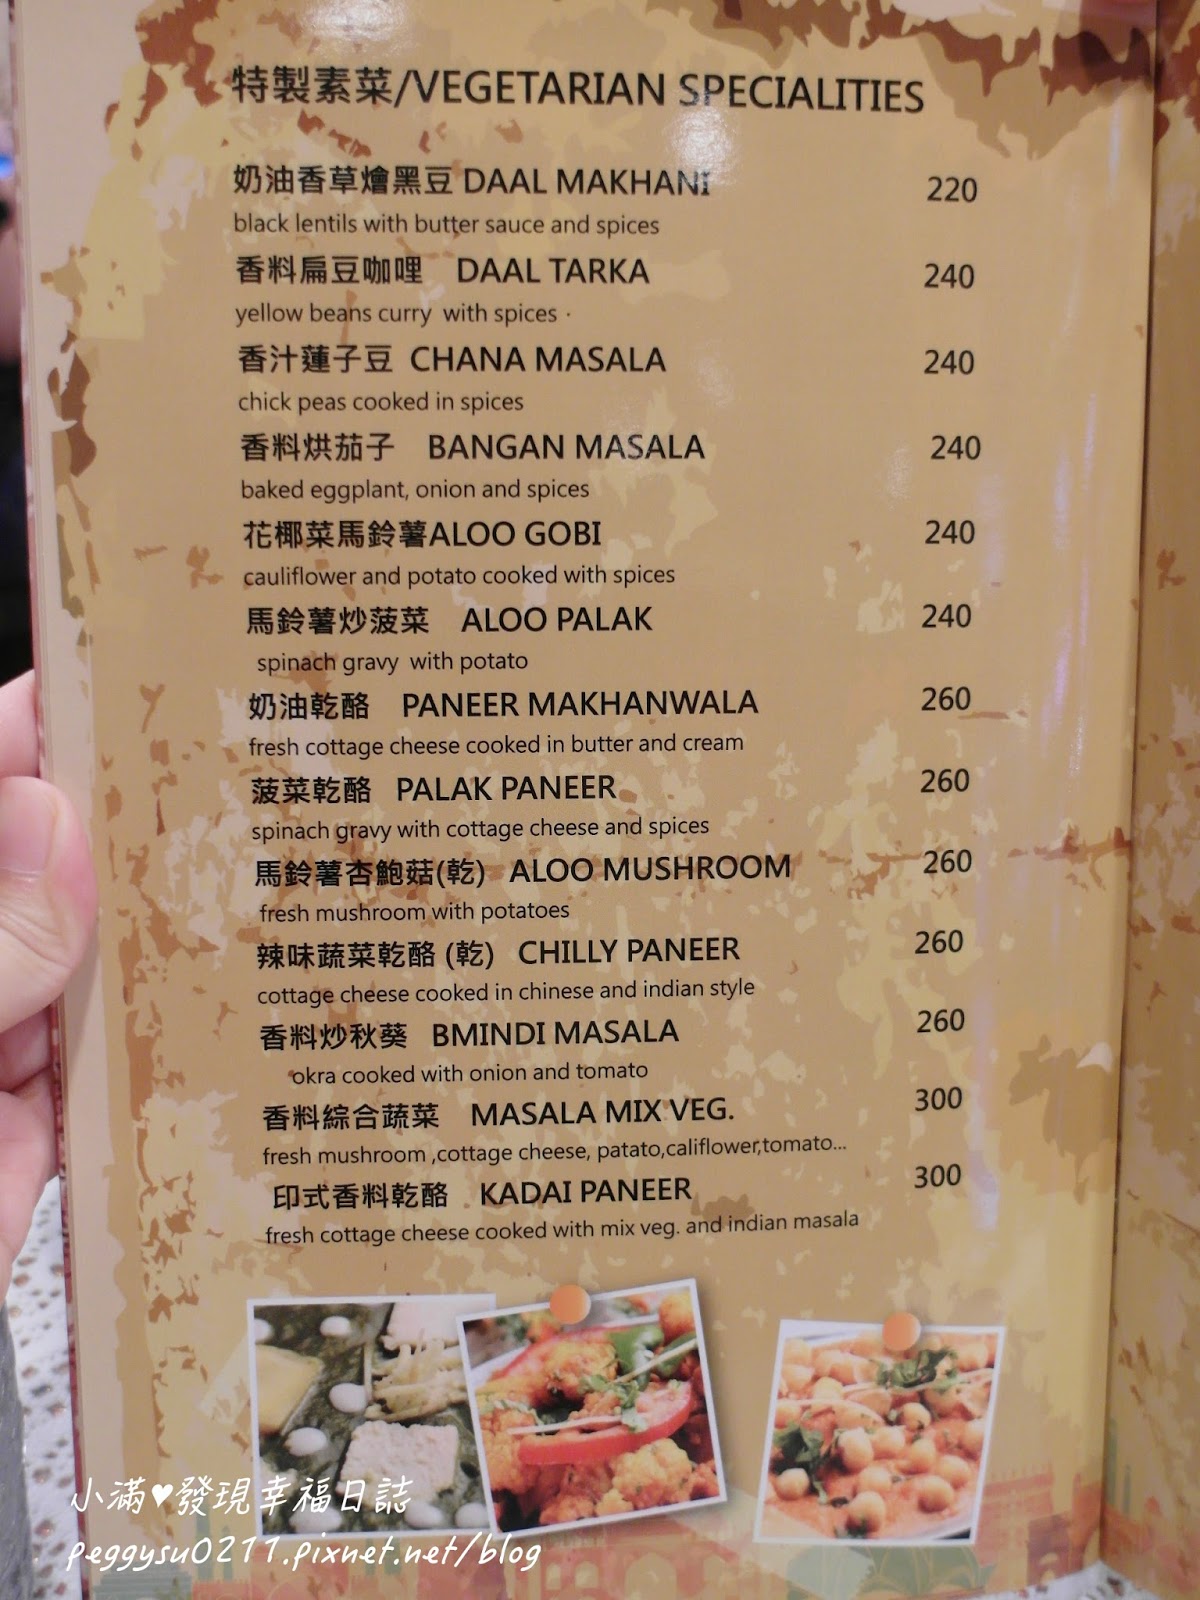 特製素菜/VEGETARIAN SPECIALITIES
奶油香草燴黑豆 DAAL MAKHANI 220
black lentils with butter sauce and spices
香料扁豆咖哩 DAAL TARKA 240
yellow beans curry with spices ·
香汁蓮子豆 CHANA MASALA 240
chick peas cooked in spices
香料烘茄子 BANGAN MASALA 240
baked eggplant, onion and spices
花椰菜馬鈴薯ALOO GOBI 240
cauliflower and potato cooked with spices
馬鈴薯炒菠菜 ALOO PALAK 240
spinach gravy with potato
奶油乾酪 PANEER MAKHANWALA 260
fresh cottage cheese cooked in butter and cream
菠菜乾酪 PALAK PANEER 260
spinach gravy with cottage cheese and spices
馬鈴薯杏鮑菇(乾) ALOO MUSHROOM 260
fresh mushroom with potatoes
辣味蔬菜乾酪 (乾) CHILLY PANEER 260
cottage cheese cooked in chinese and indian style
香料炒秋葵 BMINDI MASALA 260
okra cooked with onion and tomato
香料綜合蔬菜 MASALA MIX VEG. 300
fresh mushroom ,cottage cheese, patato,califlower,tomato...
印式香料乾酪 KADAI PANEER 300
fresh cottage cheese cooked with mix veg. and indian masala
小滿♥發現幸福日誌
peggysu0211.pixnet.net/blog